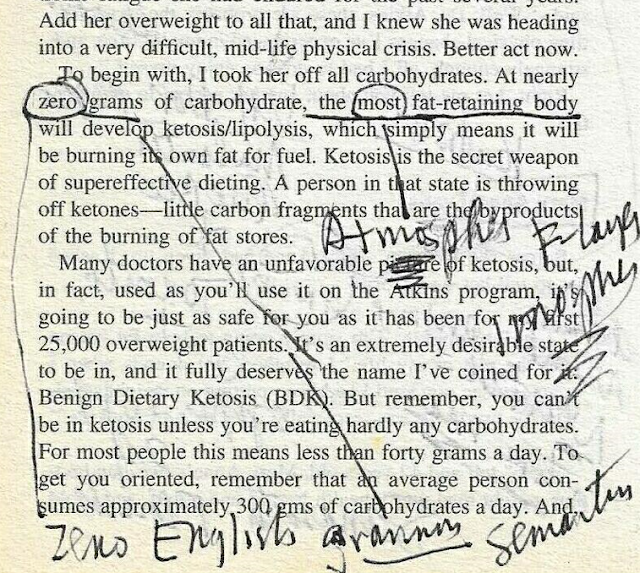 fatigue she had endured for the past several years.
Add her overweight to all that, and I knew she was heading
into a very difficult, mid-life physical crisis. Better act now.
To begin with, I took her off all carbohydrates. At nearly
zero grams of carbohydrate, the most fat-retaining body
will develop ketosis/lipolysis, which simply means it will
be burning its own fat for fuel. Ketosis is the secret weapon
of supereffective dieting. A person in that state is throwing
off ketones—little carbon fragments that are the byproducts
of the burning of fat stores.
Many doctors have an unfavorable picture of ketosis, but,
in fact, used as you'll use it on the Atkins program, it's
going to be just as safe for you as it has been for my first
25,000 overweight patients. It's an extremely desirable state
to be in, and it fully deserves the name I've coined for it:
Benign Dietary Ketosis (BDK). But remember, you can't
be in ketosis unless you're eating hardly any carbohydrates.
For most people this means less than forty grams a day. To
get you oriented, remember that an average person con-
sumes approximately 300 gms of carbohydrates a day. And,
zero English